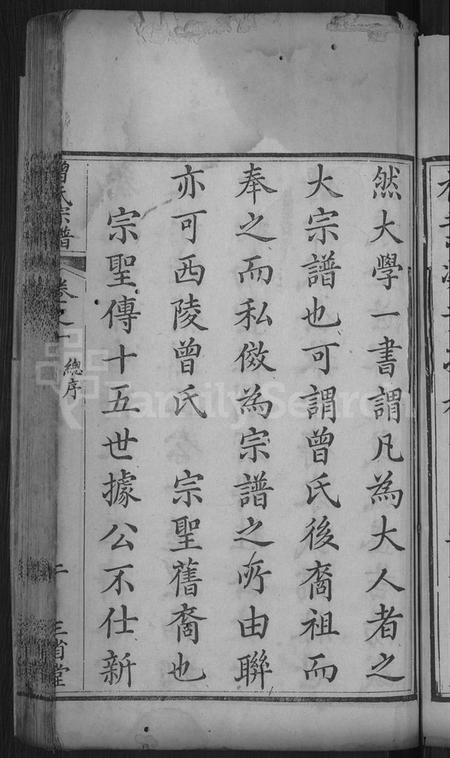 然大學一書謂凡為大人者之
大宗譜也可謂曾氏後裔祖而
奉之而私倣為宗譜之所由聯
亦可西陵曾氏 宗聖舊裔也
宗聖傳十五世據公不仕新
曾氏宗譜 卷之一 總序 三省堂
FamilySearch